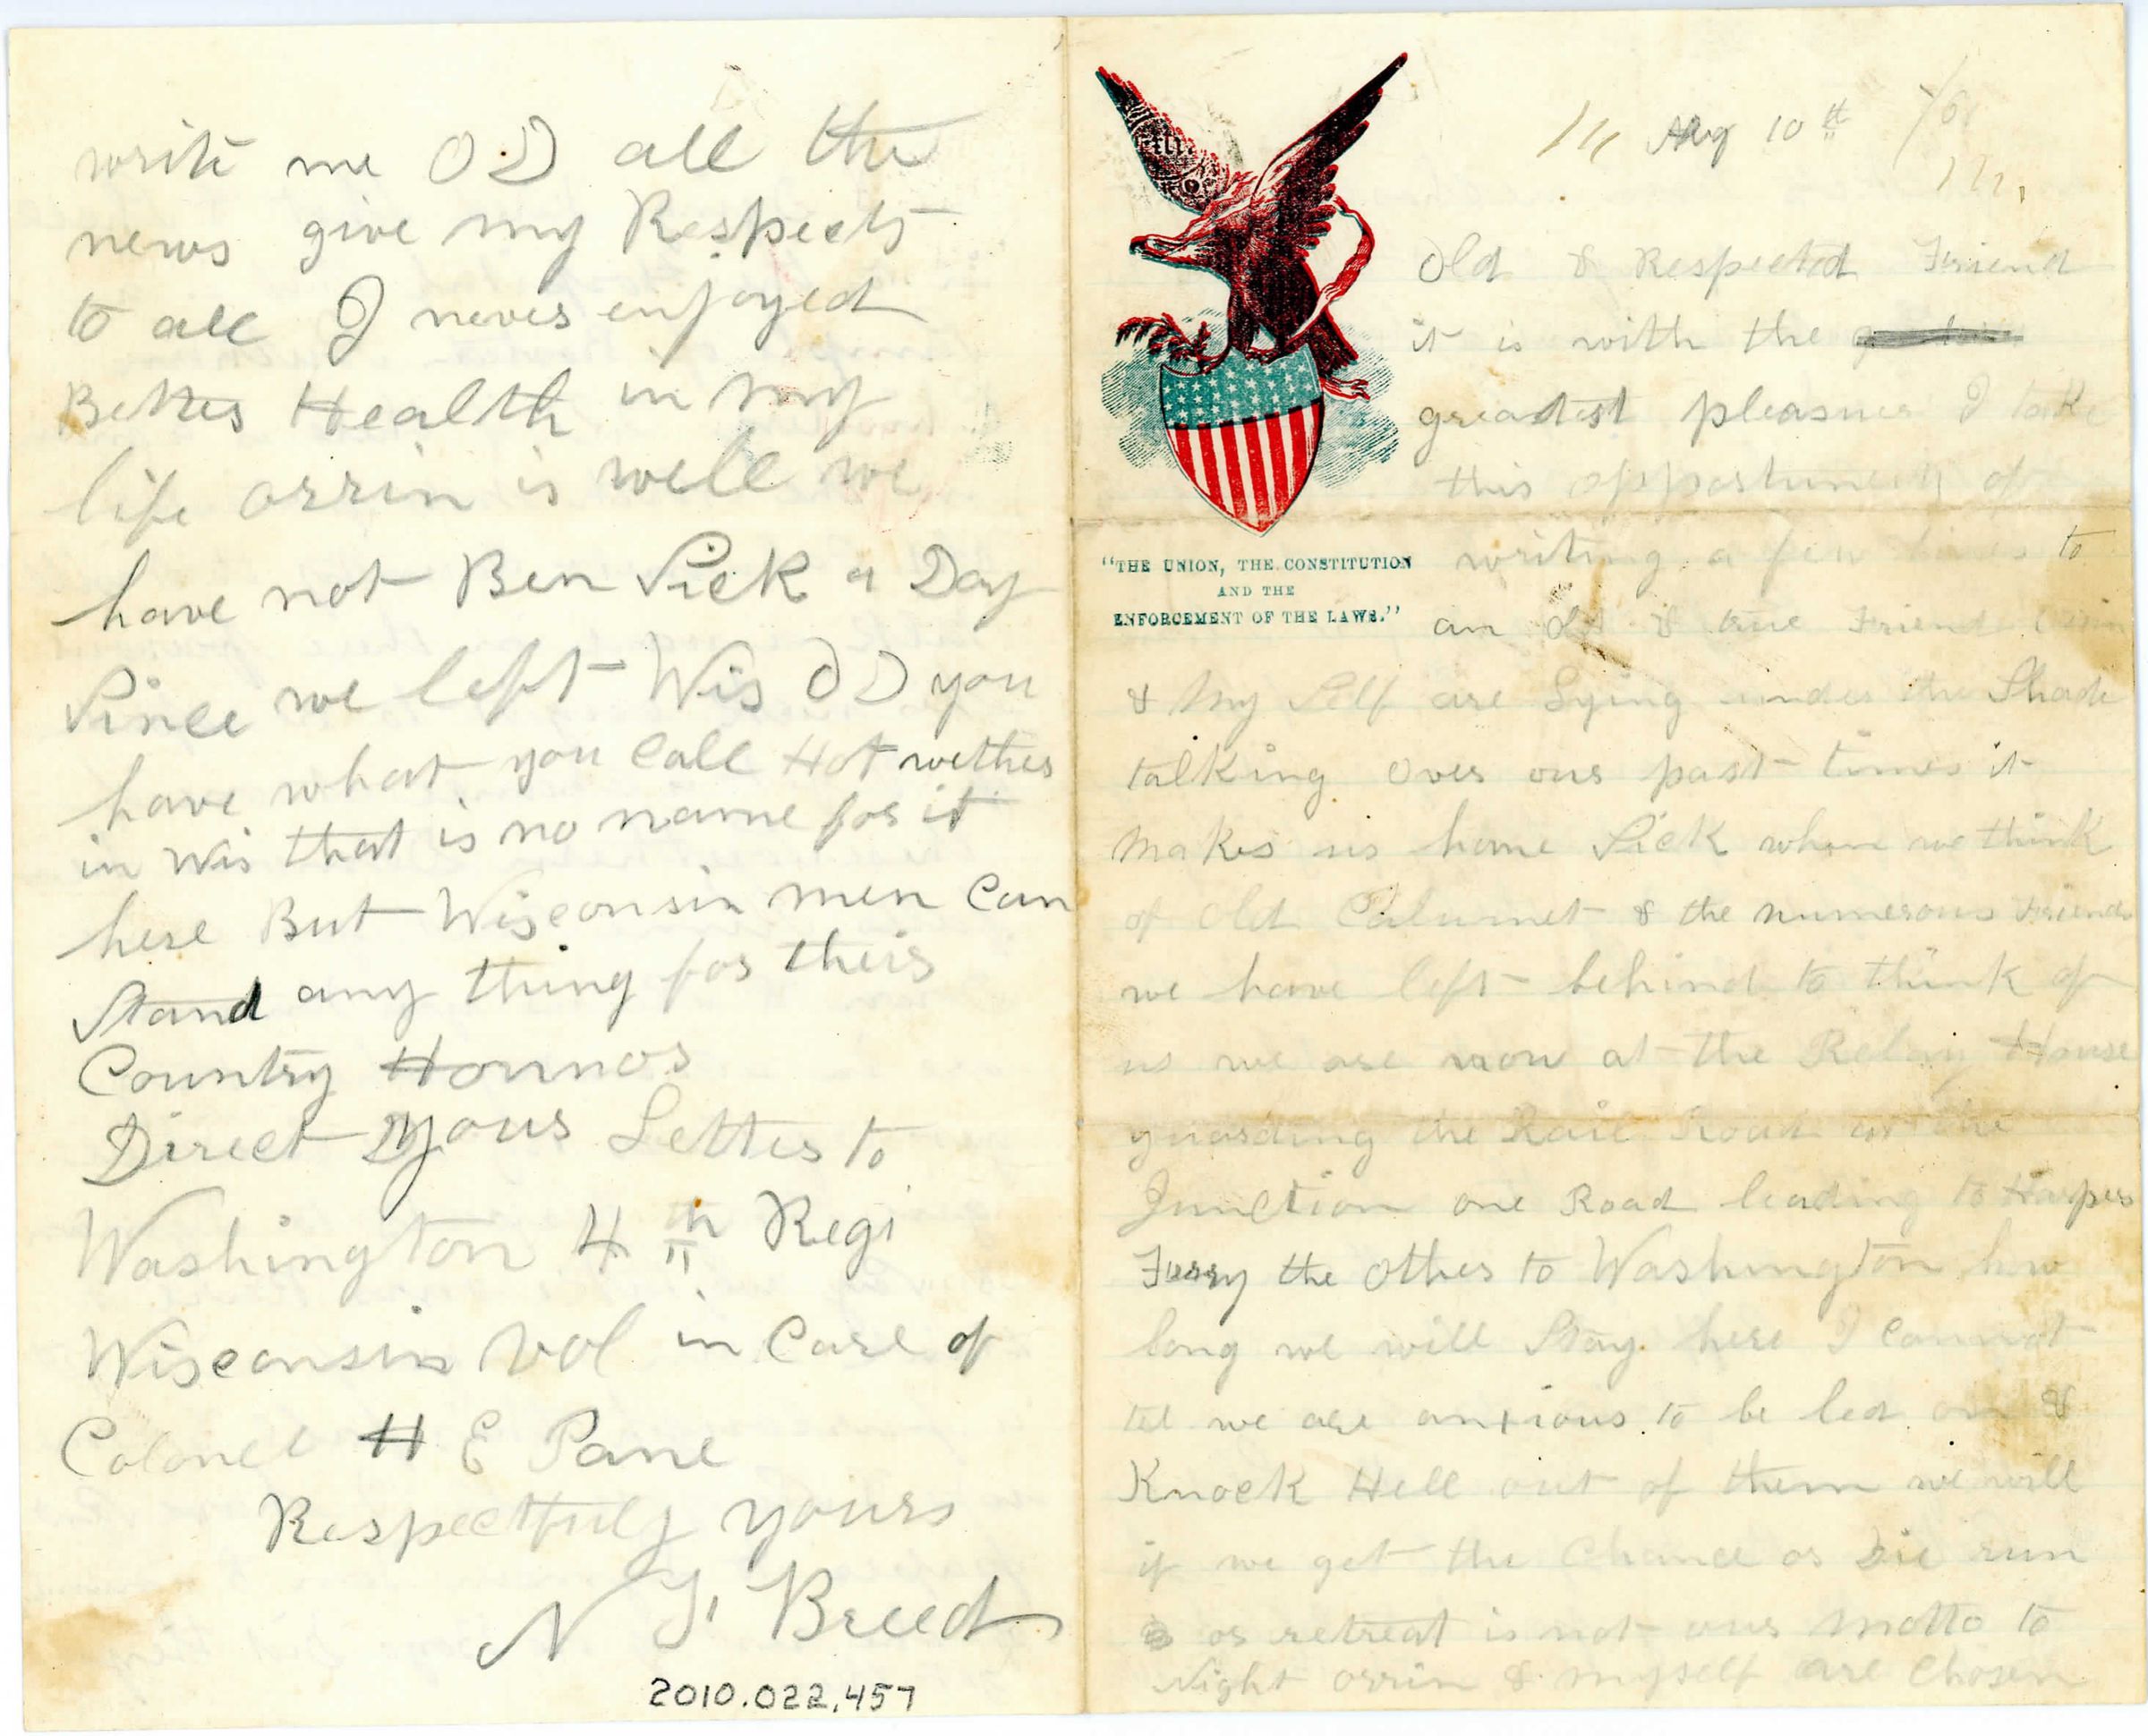 write me O.D all the
news give my Respects
to all I never enjoyed
Better Health in my
life orrin is well we
have not Ben Sick a Day
Since we left Wis OD you
have what you Call Hot wether
in Wis that is no name for it
here But Wisconsin men Can
Stand any thing for their
Country Honnor
Direct Yours Letter to
Washington 4th Regi
Wisconsin Vol in Care of
Colonel H E Pane
Respectfuly yours
N Y, Breed
2010.022.457
Aug 10th /61
Old & Respected Friend
it is with the
greatest pleasure I take
this oppertunity of
writing a few lines to
an Old & true Friend Orrin
& My Self are Lying under the Shade
talking over our past times it
Makes us home Sick when we think
of Old Calumet & the numerous Friends
we have left behind to think of
us we are now at the Relay House
guarding the Rail Road at the
Junction one Road leading to Harpers
Furry the other to Washington how
long we will Stay here I cannot
tel we are anxious to be led on &
Knock Hell out of them we will
if we get the Chance or Die run
or retreat is not our Motto to
Night orrin & myself are Chosen
"THE UNION, THE CONSTITUTION
AND THE
ENFORCEMENT OF THE LAWS."